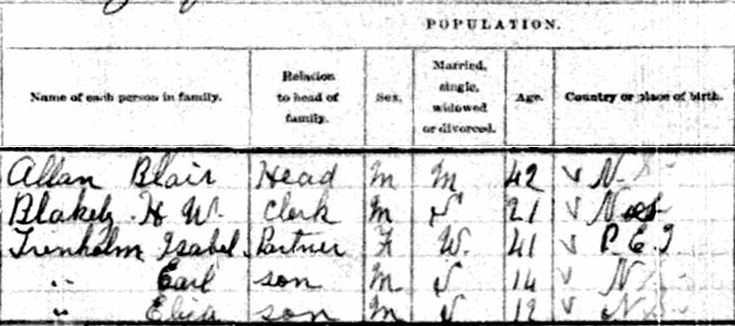 POPULATION.
Name of each person in family. Relation to head of family. Sex. Married, single, widowed or divorced. Age. Country or place of birth.
Allan Blair Head M M 42 ✓ N. S.
Blakely H W. Clerk M S 21 ✓
Trenholm Isabel Partner F W. 41 ✓ P. E. I
" Earl son M S 14 ✓ N
" son M S 12 ✓ N